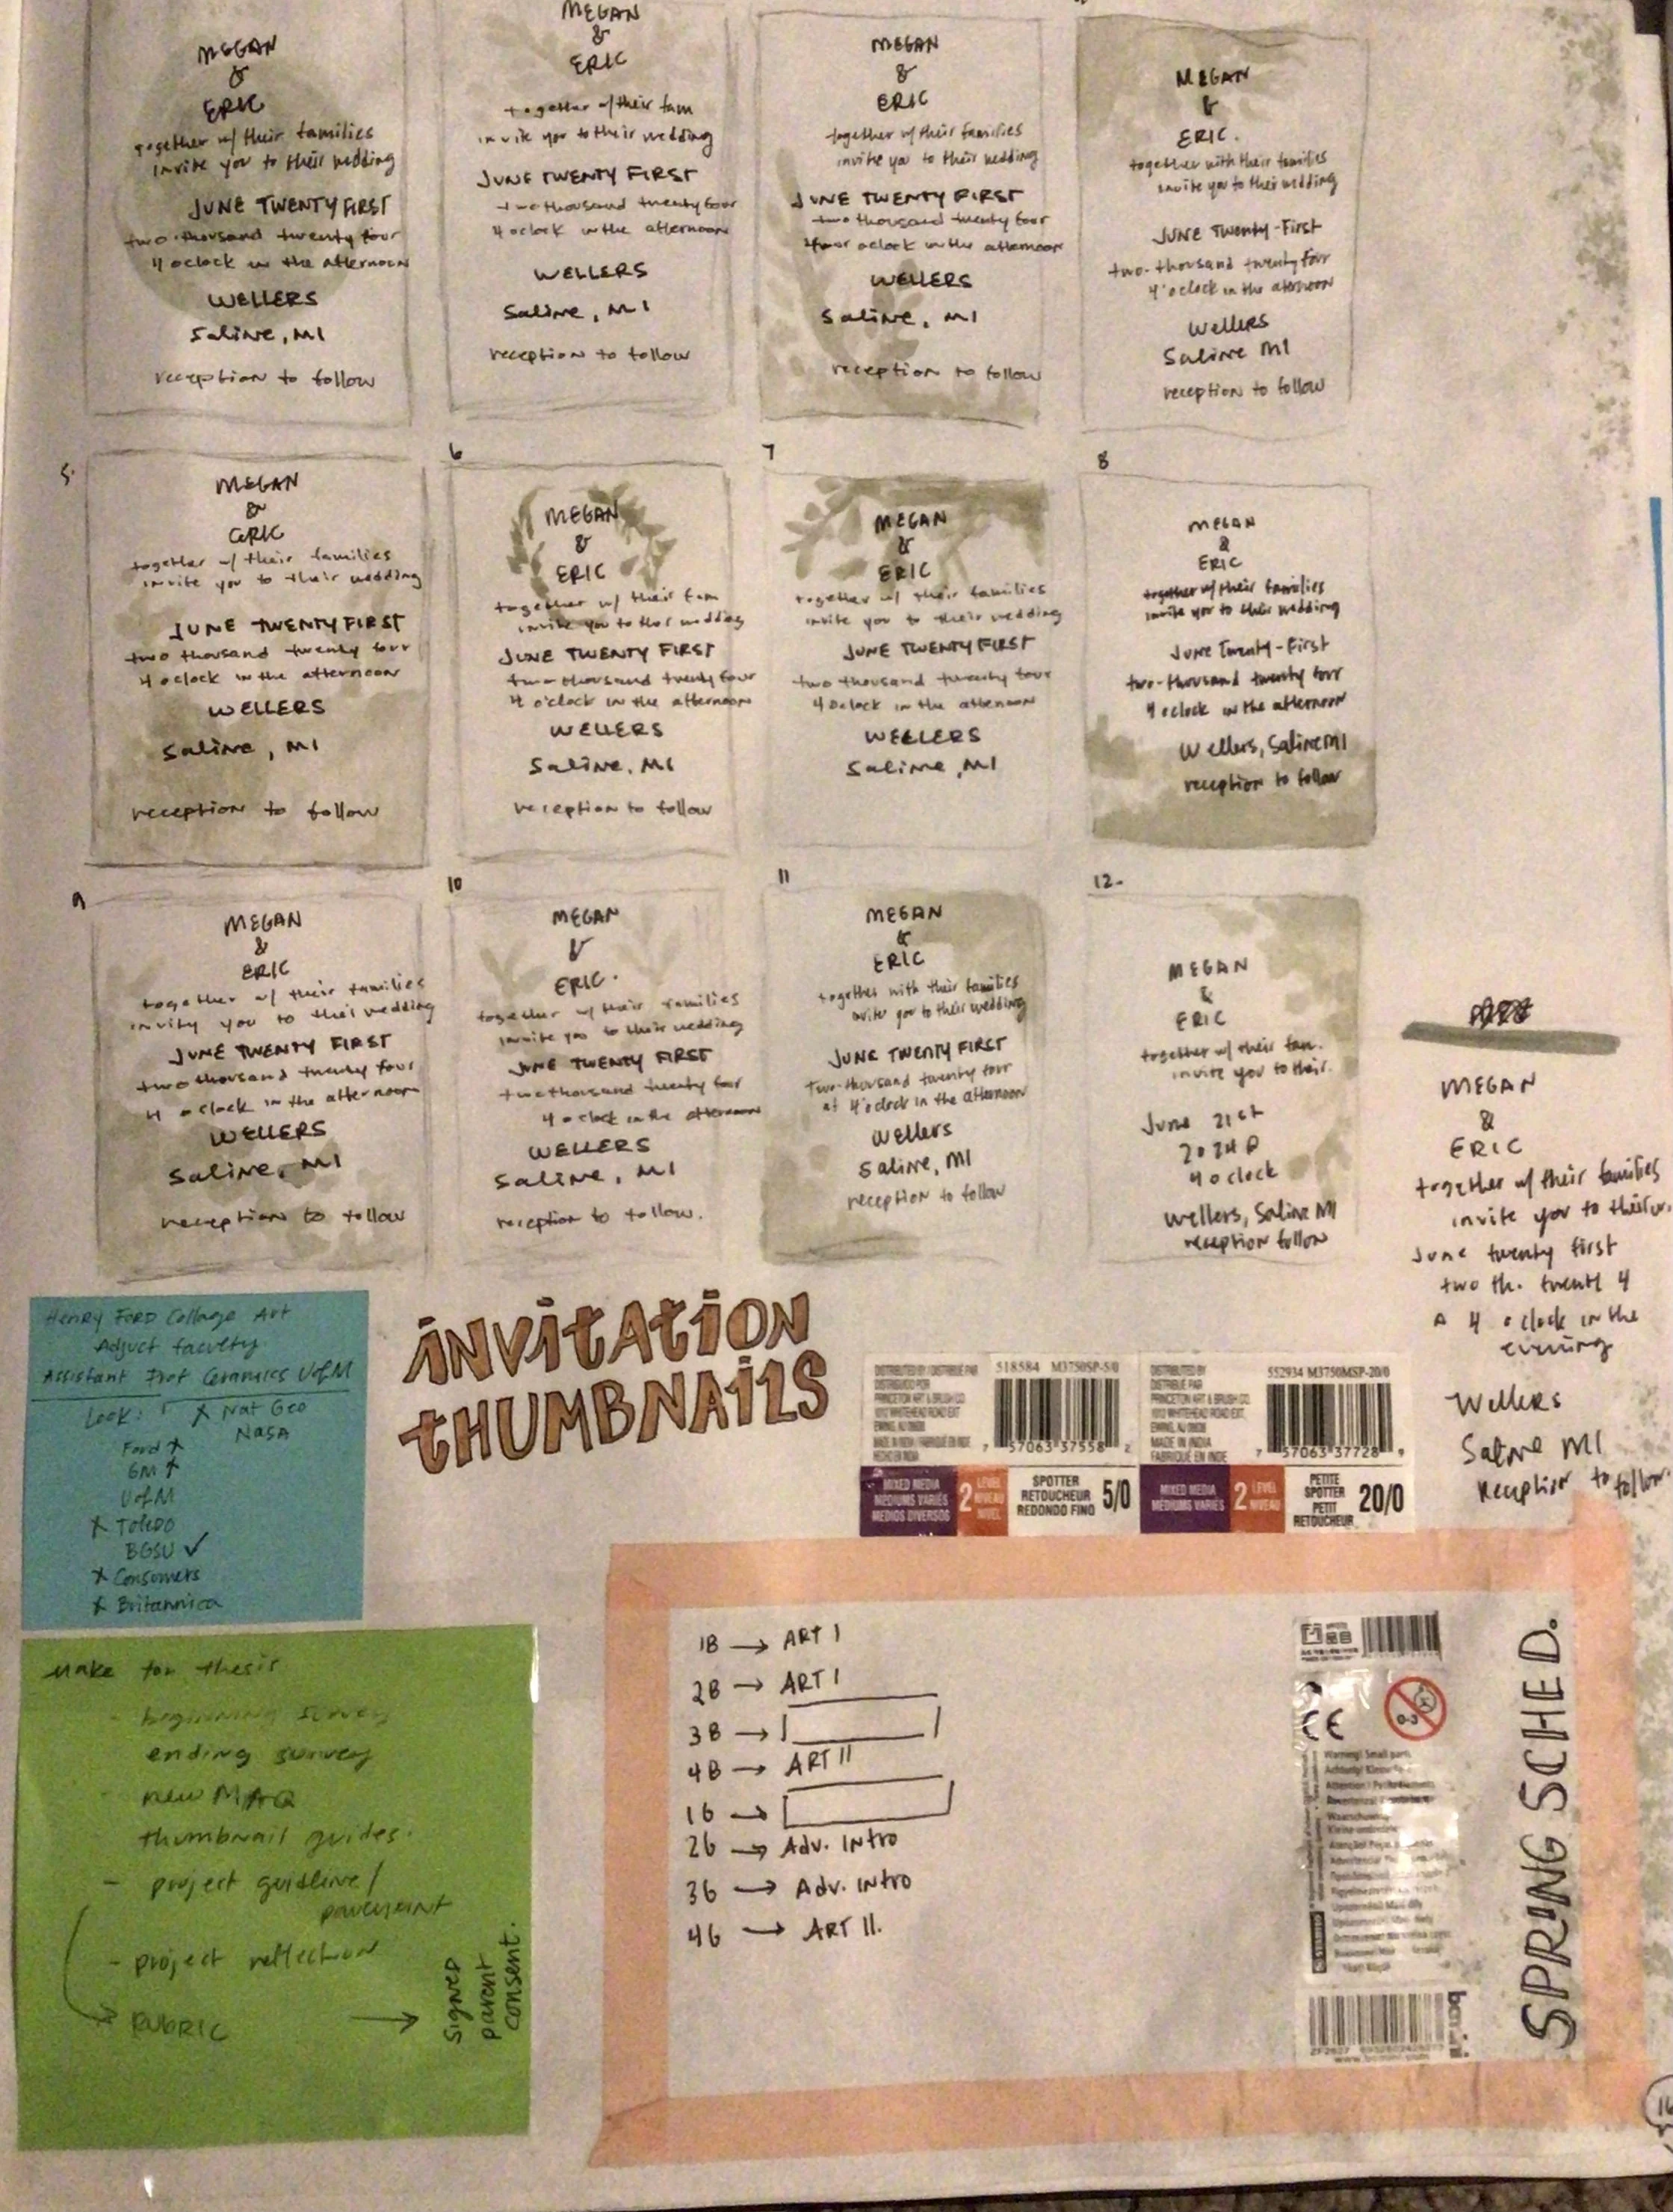 MEGAN
&
ERIC
together w/ their families
invite you to their wedding
JUNE TWENTY FIRST
two thousand twenty four
4 oclock in the afternoon
WELLERS
Saline, MI
reception to follow
MEGAN
&
ERIC
together w/ their fam
invite you to their wedding
JUNE TWENTY FIRST
two thousand twenty four
4 oclock in the afternoon
WELLERS
Saline, MI
reception to follow
MEGAN
&
ERIC
together w/ their families
invite you to their wedding
JUNE TWENTY FIRST
two thousand twenty four
four oclock in the afternoon
WELLERS
Saline, MI
reception to follow
MEGAN
&
ERIC.
together with their families
invite you to their wedding
JUNE Twenty-First
two-thousand twenty four
4 o'clock in the afternoon
Wellers
Saline MI
reception to follow
5.
MEGAN
&
ERIC
together w/ their families
invite you to their wedding
JUNE TWENTY FIRST
two thousand twenty four
4 oclock in the afternoon
WELLERS
Saline, MI
reception to follow
6
MEGAN
&
ERIC
together w/ their fam
invite you to their wedding
JUNE TWENTY FIRST
two thousand twenty four
4 o'clock in the afternoon
WELLERS
Saline, MI
reception to follow
7
MEGAN
&
ERIC
together w/ their families
invite you to their wedding
JUNE TWENTY FIRST
two thousand twenty four
4 oclock in the afternoon
WELLERS
Saline, MI
8
MEGAN
&
ERIC
together w/ their families
invite you to their wedding
June Twenty-First
two-thousand twenty four
4 oclock in the afternoon
Wellers, Saline MI
reception to follow
9
MEGAN
&
ERIC
together w/ their families
invity you to their wedding
JUNE TWENTY FIRST
two thousand twenty four
4 oclock in the afternoon
WELLERS
Saline, MI
reception to follow
10
MEGAN
&
ERIC.
together w/ their families
invite you to their wedding
JUNE TWENTY FIRST
two thousand twenty four
4 oclock in the afternoon
WELLERS
Saline, MI
reception to follow.
11
MEGAN
&
ERIC
together with their families
invite you to their wedding
JUNE TWENTY FIRST
Two-thousand twenty four
at 4 o'clock in the afternoon
Wellers
Saline, MI
reception to follow
12-
MEGAN
&
ERIC
together w/ their fam.
invite you to their.
June 21st
2024 @
4 oclock
Wellers, Saline MI
reception follow
MEGAN
&
ERIC
together w/ their families
invite you to their w.
June twenty first
two th. twent 4
@ 4 oclock in the
evening
Wellers
Saline MI
reception to follow
Henry Ford Collage Art
Adjuct faculty
Assistant Prof Ceramics UofM
Look:
x Nat Geo
NASA
Ford x
GM x
UofM
x Toledo
BGSU ✓
x Consumers
x Britannica
INVITATION
THUMBNAILS
518584 M3750SP-5/0
DISTRIBUTED BY
PRINCETON ART & BRUSH CO.
7 57063 37558 2
MIXED MEDIA
MEDIUMS VARIÉS
MEDIOS DIVERSOS
2 LEVEL
NIVEAU
NIVEL
SPOTTER
RETOUCHEUR
REDONDO FINO
5/0
552934 M3750MSP-20/0
DISTRIBUTED BY
DISTRIBUÉ PAR
PRINCETON ART & BRUSH CO.
MADE IN INDIA
FABRIQUÉ EN INDE
7 57063 37728 9
MIXED MEDIA
MEDIUMS VARIÉS
2 LEVEL
NIVEAU
PETITE
SPOTTER
PETIT
RETOUCHEUR
20/0
Make for thesis
- beginning survey
ending survey
- new MAQ
thumbnail guides.
- project guidline/
- project reflection
RUBRIC →
signed
parent
consent.
1B → ART I
2B → ART I
3B →
4B → ART II
1G →
2G → Adv. Intro
3G → Adv. Intro
4G → ART II.
CE
0-3
Warning! Small parts
SPRING SCHED.
16